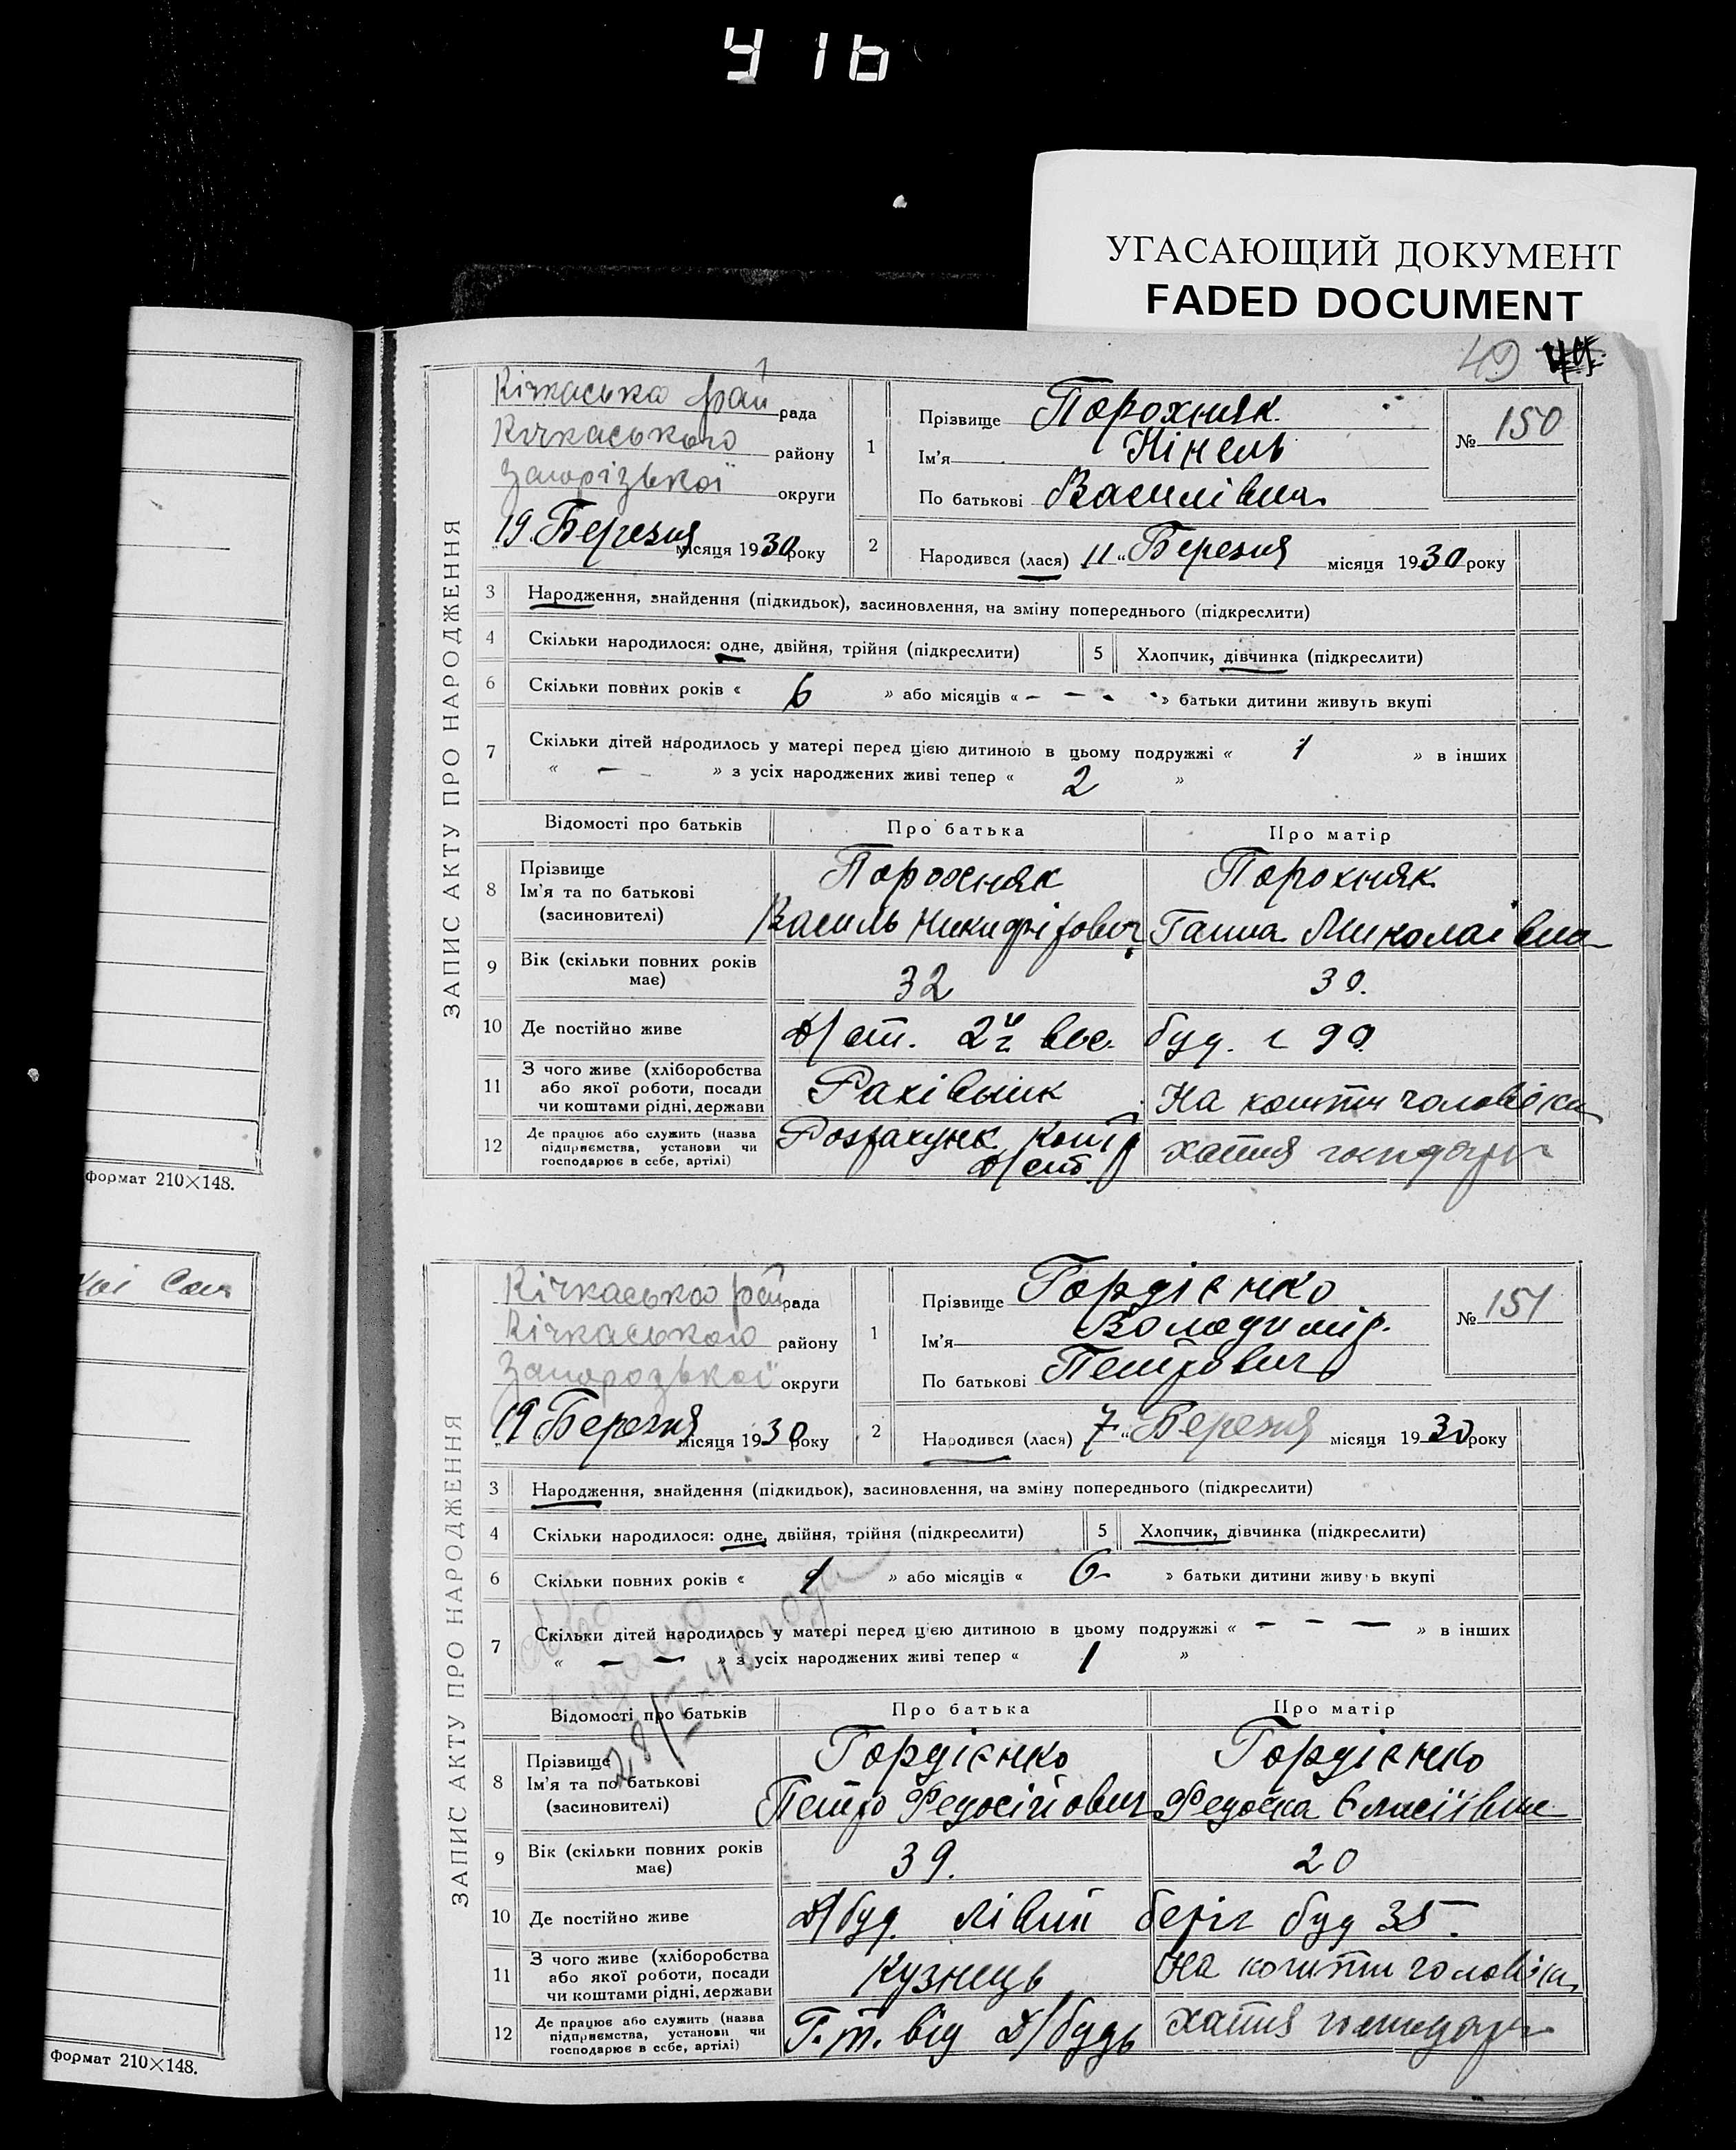 УГАСАЮЩИЙ ДОКУМЕНТ
FADED DOCUMENT
49
ЗАПИС АКТУ ПРО НАРОДЖЕННЯ
Кічкаська рай рада
Кічкаського району
Запорізької округи
19 Березня місяця 1930 року
1
Прізвище Порохняк
Ім'я Нінель
По батькові Василівна
№ 150
2 Народився (лася) 11 " Березня місяця 1930 року
3 Народження, знайдення (підкидьок), засиновлення, на зміну попереднього (підкреслити)
4 Скільки народилося: одне, двійня, трійня (підкреслити) 5 Хлопчик, дівчинка (підкреслити)
6 Скільки повних років « 6 » або місяців « – – – » батьки дитини живуть вкупі
7 Скільки дітей народилось у матері перед цією дитиною в цьому подружжі « 1 » в інших
« – – » з усіх народжених живі тепер « 2 »
Відомості про батьків Про батька Про матір
8 Прізвище Порохняк Порохняк
Ім'я та по батькові
(засновителі) Василь Никифірович Ганна Миколаівна
9 Вік (скільки повних років має) 32 30.
10 Де постійно живе Д/ст. 2й вос. буд. 90
11 З чого живе (хліборобства або якої роботи, посади чи коштами рідні, держави Рахівник На кошти чоловіка
12 Де працює або служить (назва підприємства, установи чи господарює в себе, артілі) Розрахунк. Д/ст. хатня господар
формат 210×148.
ЗАПИС АКТУ ПРО НАРОДЖЕННЯ
Кічкаська рай рада
Кічкаського району
Запорозької округи
19 Березня місяця 1930 року
1
Прізвище Гордієнко
Ім'я Володимір.
По батькові Петрович
№ 151
2 Народився (лася) 7 " Березня місяця 1930 року
3 Народження, знайдення (підкидьок), засиновлення, на зміну попереднього (підкреслити)
4 Скільки народилося: одне, двійня, трійня (підкреслити) 5 Хлопчик, дівчинка (підкреслити)
6 Скільки повних років « 1 » або місяців « 6 » батьки дитини живуть вкупі
7 Скільки дітей народилось у матері перед цією дитиною в цьому подружжі « – – – » в інших
« – – » з усіх народжених живі тепер « 1 »
Відомості про батьків Про батька Про матір
8 Прізвище Гордієнко Гордієнко
Ім'я та по батькові
(засиновителі) Петро Федосійович Федоска
9 Вік (скільки повних років має) 39. 20
10 Де постійно живе Д/буд. лівий беріг буд 35
11 З чого живе (хліборобства або якої роботи, посади чи коштами рідні, держави Кузнець На кошти чоловіка
12 Де працює або служить (назва підприємства, установи чи господарює в себе, артілі) Г.т. від Д/будь хатня господар
формат 210×148.